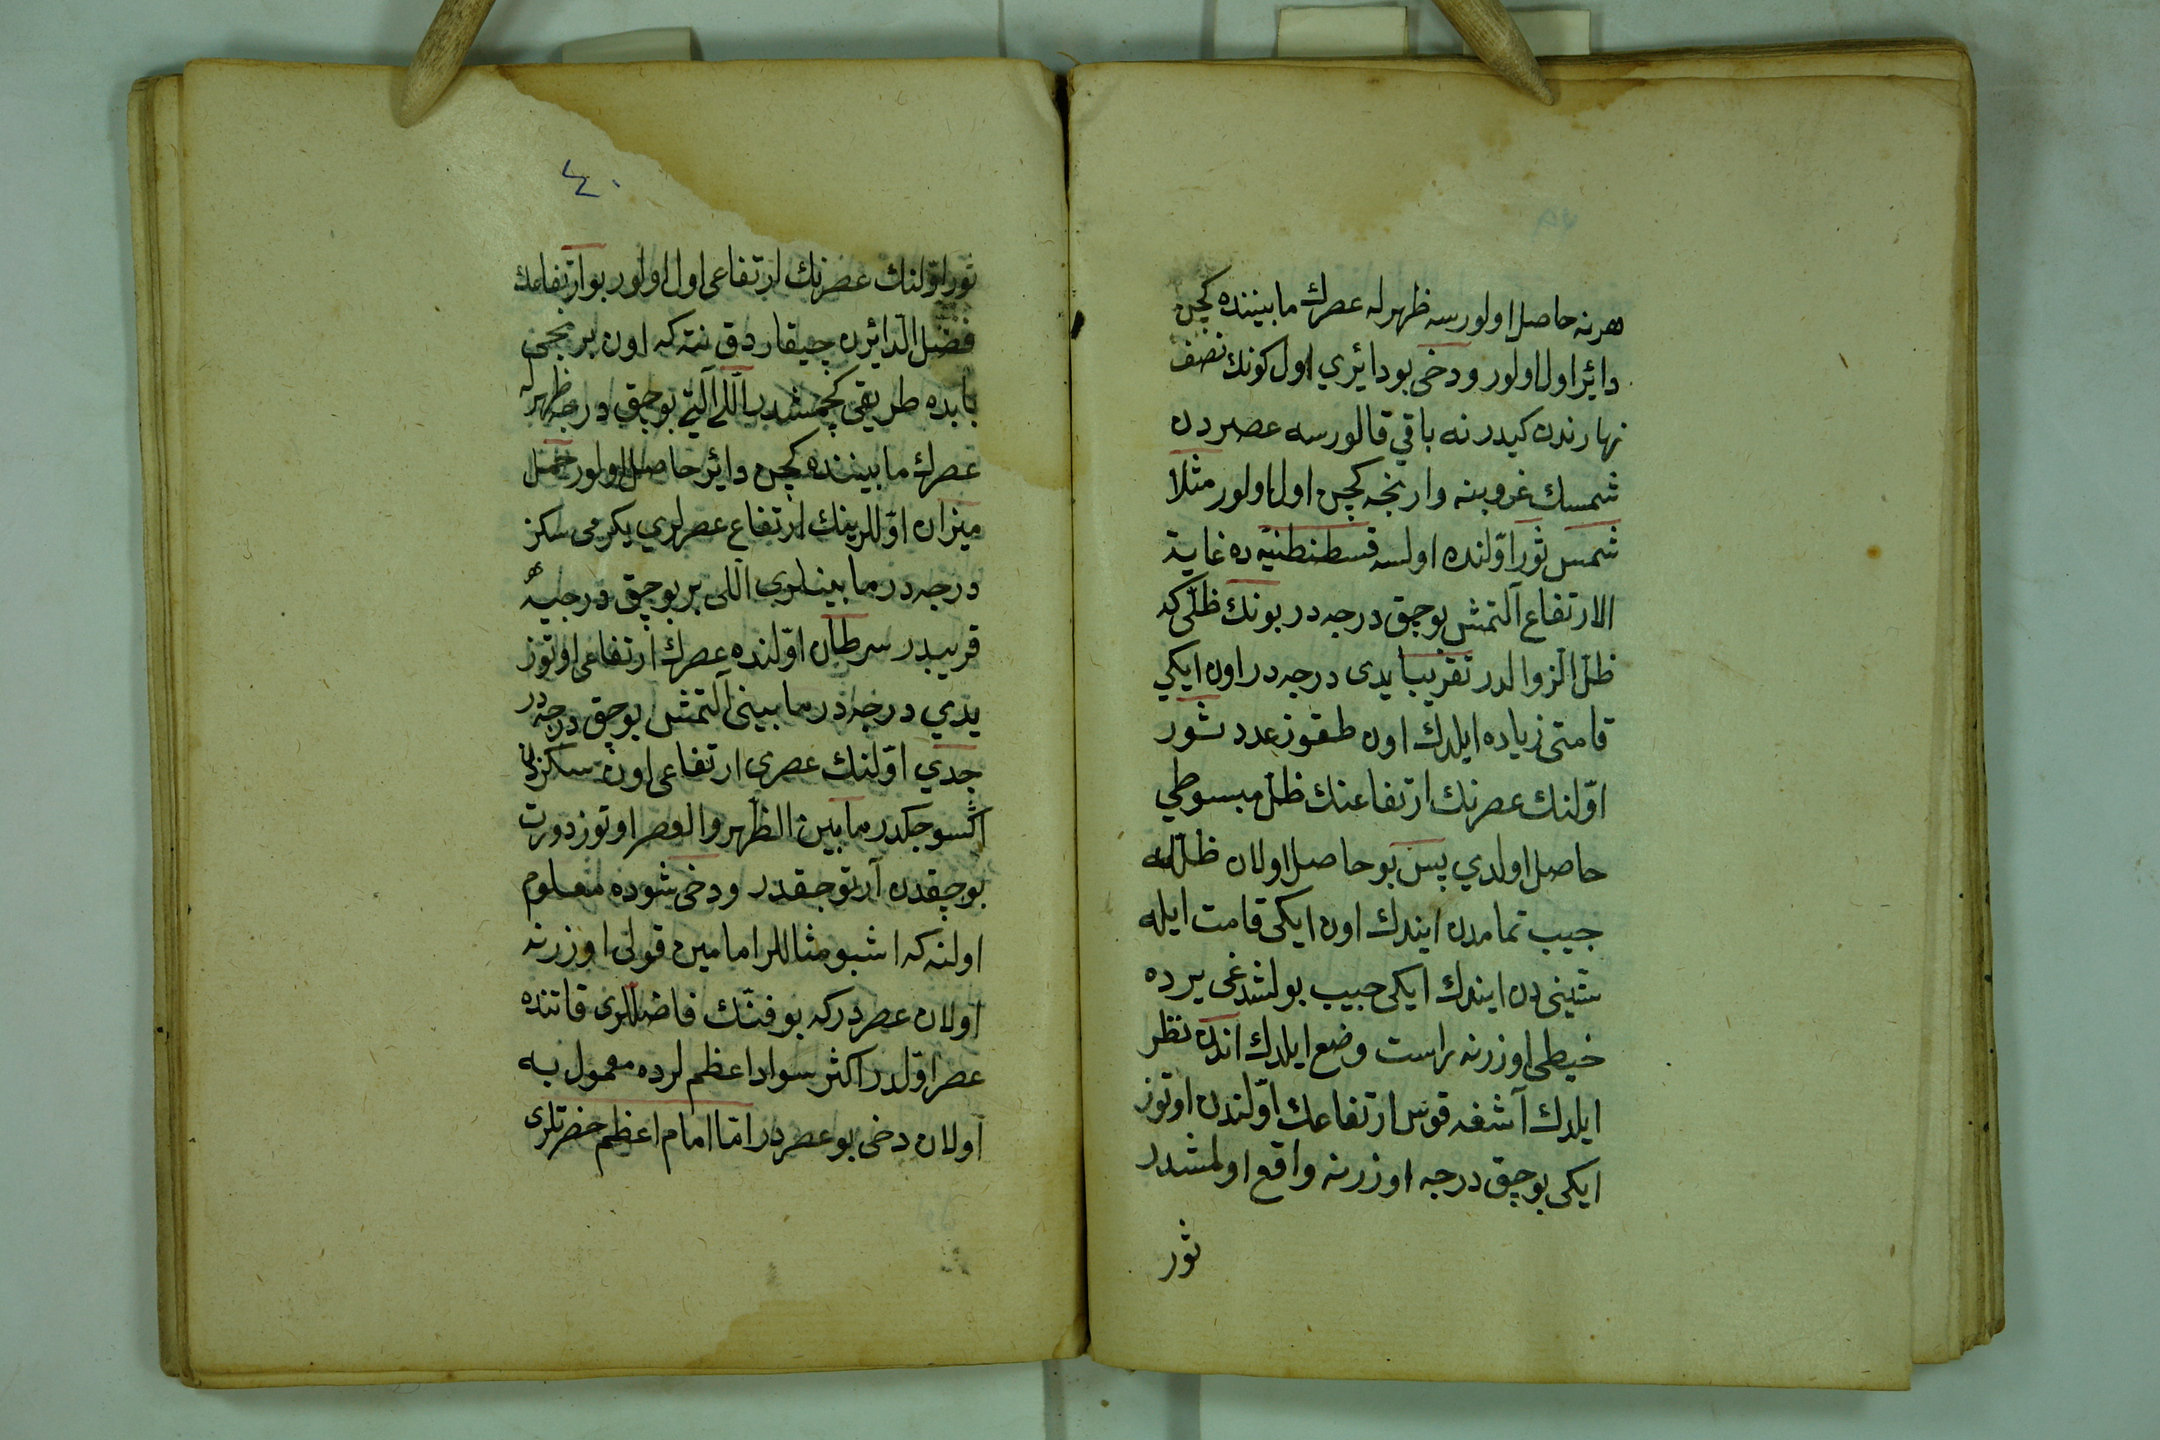 هرنه حاصل اولورسه ظهرله عصرك مابيننده كچن
دائر اول اولور ودخى بودائري اول كونك نصف
نهارندن كيدر نه باقي قالورسه عصردن
شمسك غروبنه وارنجه كچن اول اولور مثلا
شمس ثور اوّلنده اولسه قسطنطنيّه ده غاية
الارتفاع آلتمش بوچق درجه در بونك ظلّى كه
ظلّ الزوالدر تقريبا يدى درجه در اون ايكي
قامتى زياده ايلدك اون طقوز عدد ثور
اوّلنك عصرنك ارتفاعنك ظلّ مبسوطي
حاصل اولدي پس بو حاصل اولان ظلّله
جيب تمامدن ايندك اون ايكى قامت ايله
ستينى دن ايندك ايكى جيب بولشدغى يرده
خيطى اوزرنه راست وضع ايلدك اندن نظر
ايلدك آشغه قوس ارتفاعك اوّلندن اوتوز
ايكى بوچق درجه اوزرنه واقع اولمشدر
ثور
٤٠
ثور اوّلنك عصرنك ارتفاعى اول اولور بو ارتفاعك
فضل الدائرن چيقاردق نته كه اون برنجى
بابده طريقى كچمشدر اللى آلتى بوچق درجه ظهرله
عصرك مابيننده كچن دائر حاصل اولور حمل
ميزان اوّللرينك ارتفاع عصرلري يكرمى سكز
درجه در مابينلرى اللى بر بوچق درجيه
قريبدر سرطان اوّلنده عصرك ارتفاعى اوتوز
يدي درجه در مابينى آلتمش بوچق درجه در
جدي اوّلنك عصرى ارتفاعى اون سكزدن
اكسوجكدر مابين الظهر والعصر اوتوز دورت
بوچقدن آرتوجقدر ودخى شوده معلوم
اولنه كه اشبو مثاللر امامين قولى اوزرنه
اولان عصردركه بوفنّك فاضللرى قاتنده
عصر اوّلدر اكثر سواد اعظملرده معمول به
اولان دخى بو عصردر امّا امام اعظم حضرتلرى